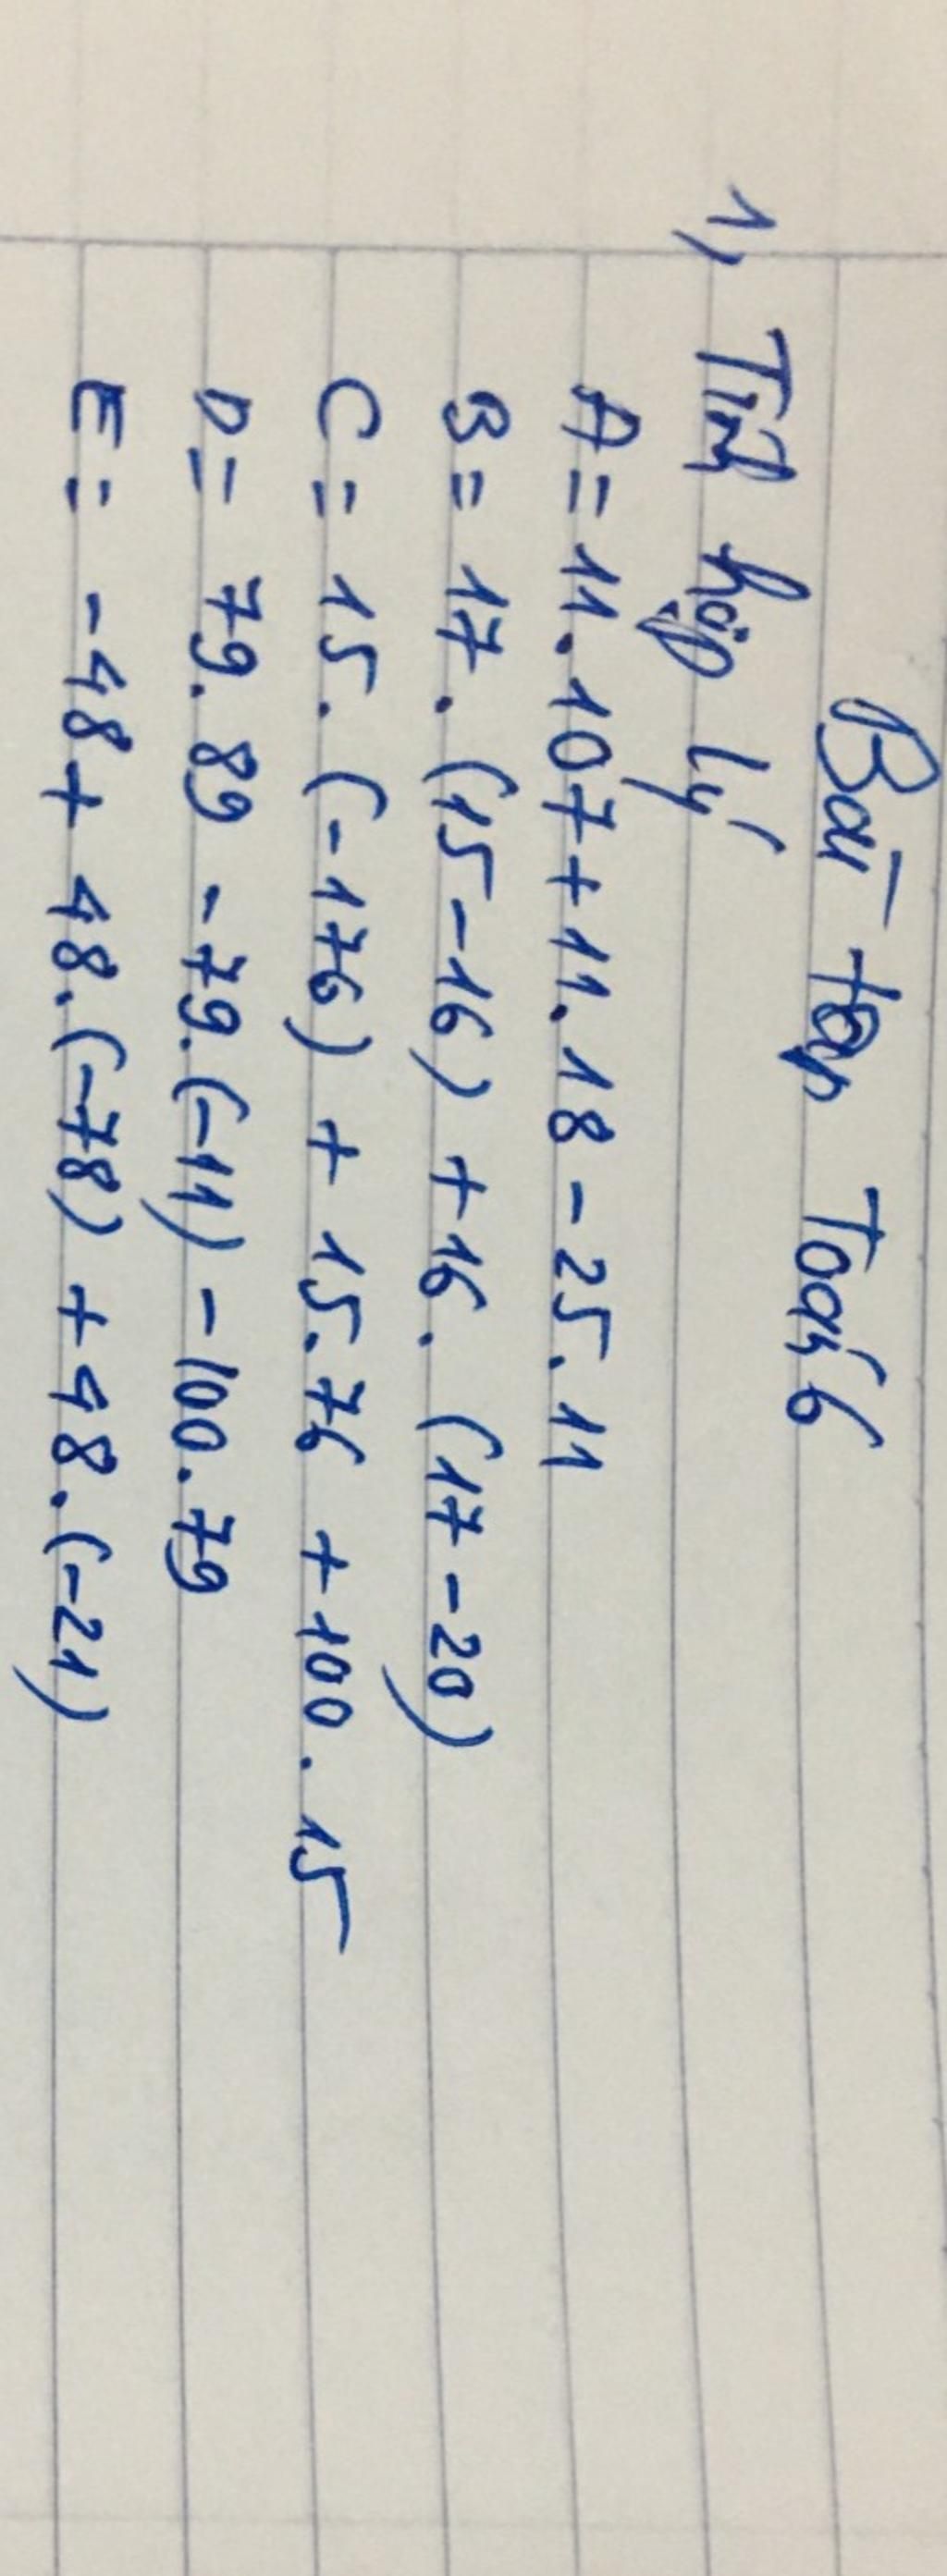 Bài tập Toán 6
1, Tính hợp lý
A = 11.107 + 11.18 - 25.11
B = 17.(15 - 16) + 16.(17 - 20)
C = 15.(-176) + 15.76 + 100.15
D = 79.89 - 79.(-11) - 100.79
E = -48 + 48.(-78) + 48.(-21)